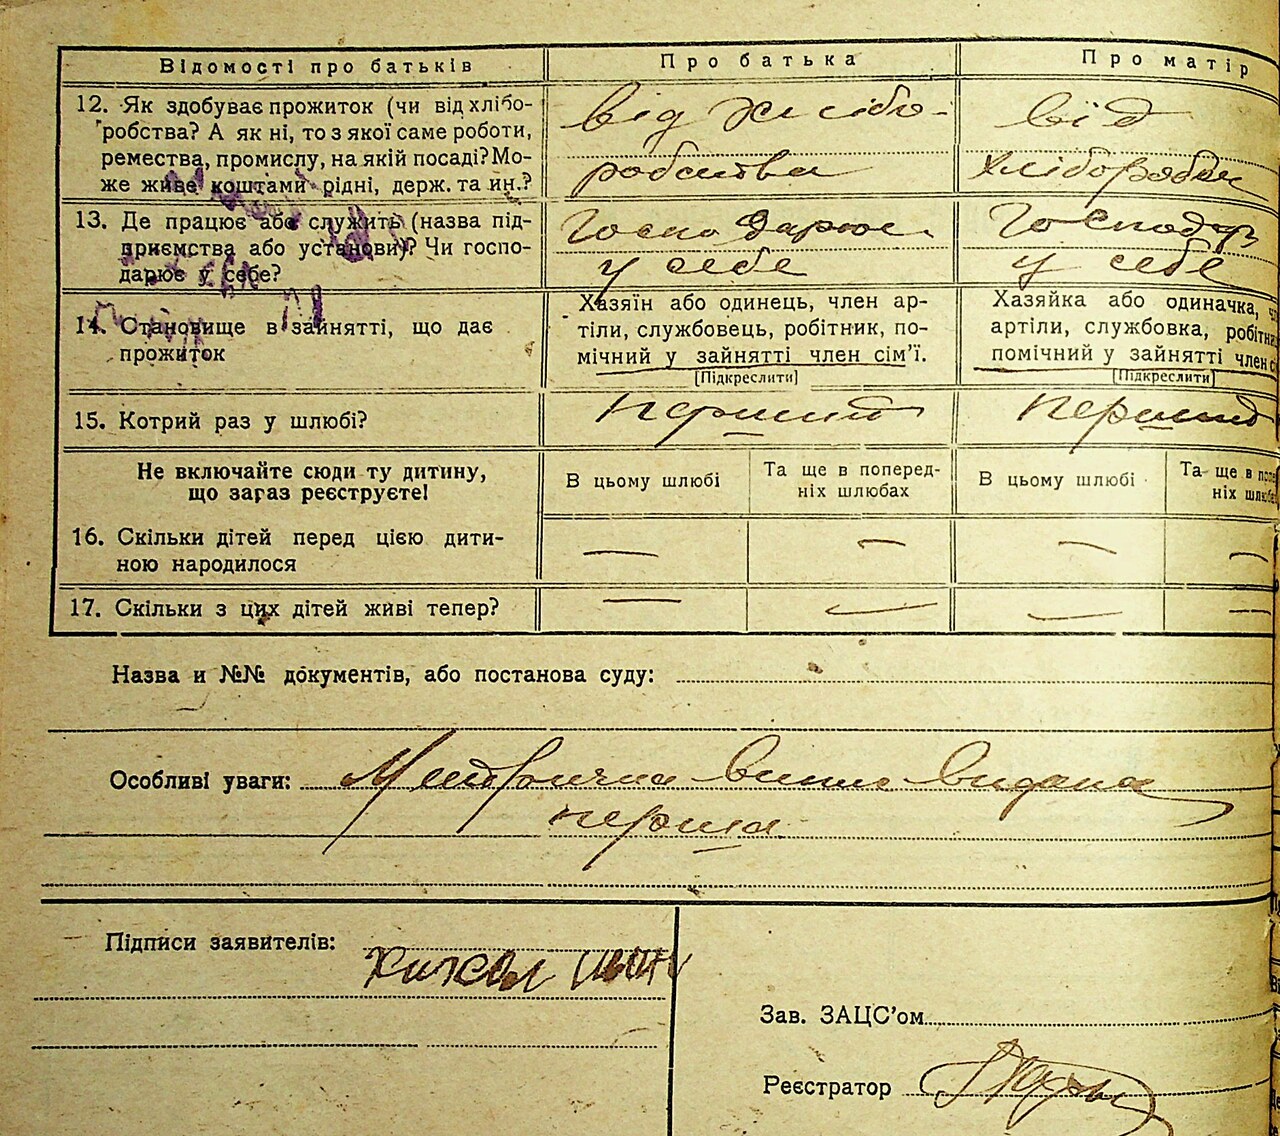 Відомості про батьків Про батька Про матір
12. Як здобуває прожиток (чи від хлібо-
робства? А як ні, то з якої саме роботи,
ремества, промислу, на якій посаді? Мо-
же живе коштами рідні, держ. та ин.?
від хлібо-
робства
від
хліборобст
13. Де працює або служить (назва під-
приємства або установи)? Чи госпо-
дарює у себе?
Господарює
у себе
Господар
у себе
14. Становище в зайнятті, що дає
прожиток
Хазяїн або одинець, член ар-
тіли, службовець, робітник, по-
мічний у зайнятті член сім'ї.
[Підкреслити]
Хазяйка або одиначка,
артіли, службовка, робітн
помічний у зайнятті член с
[Підкреслити]
15. Котрий раз у шлюбі?
перший
перший
Не включайте сюди ту дитину,
що зараз реєструєте!
В цьому шлюбі
Та ще в поперед-
ніх шлюбах
В цьому шлюбі
Та ще в попе
ніх шлюбе
16. Скільки дітей перед цією дити-
ною народилося
— — — —
17. Скільки з цих дітей живі тепер?
— — — —
Назва и №№ документів, або постанова суду:
Особливі уваги: Метрична випис видана
перша
Підписи заявителів:
Зав. ЗАЦС'ом
Реєстратор